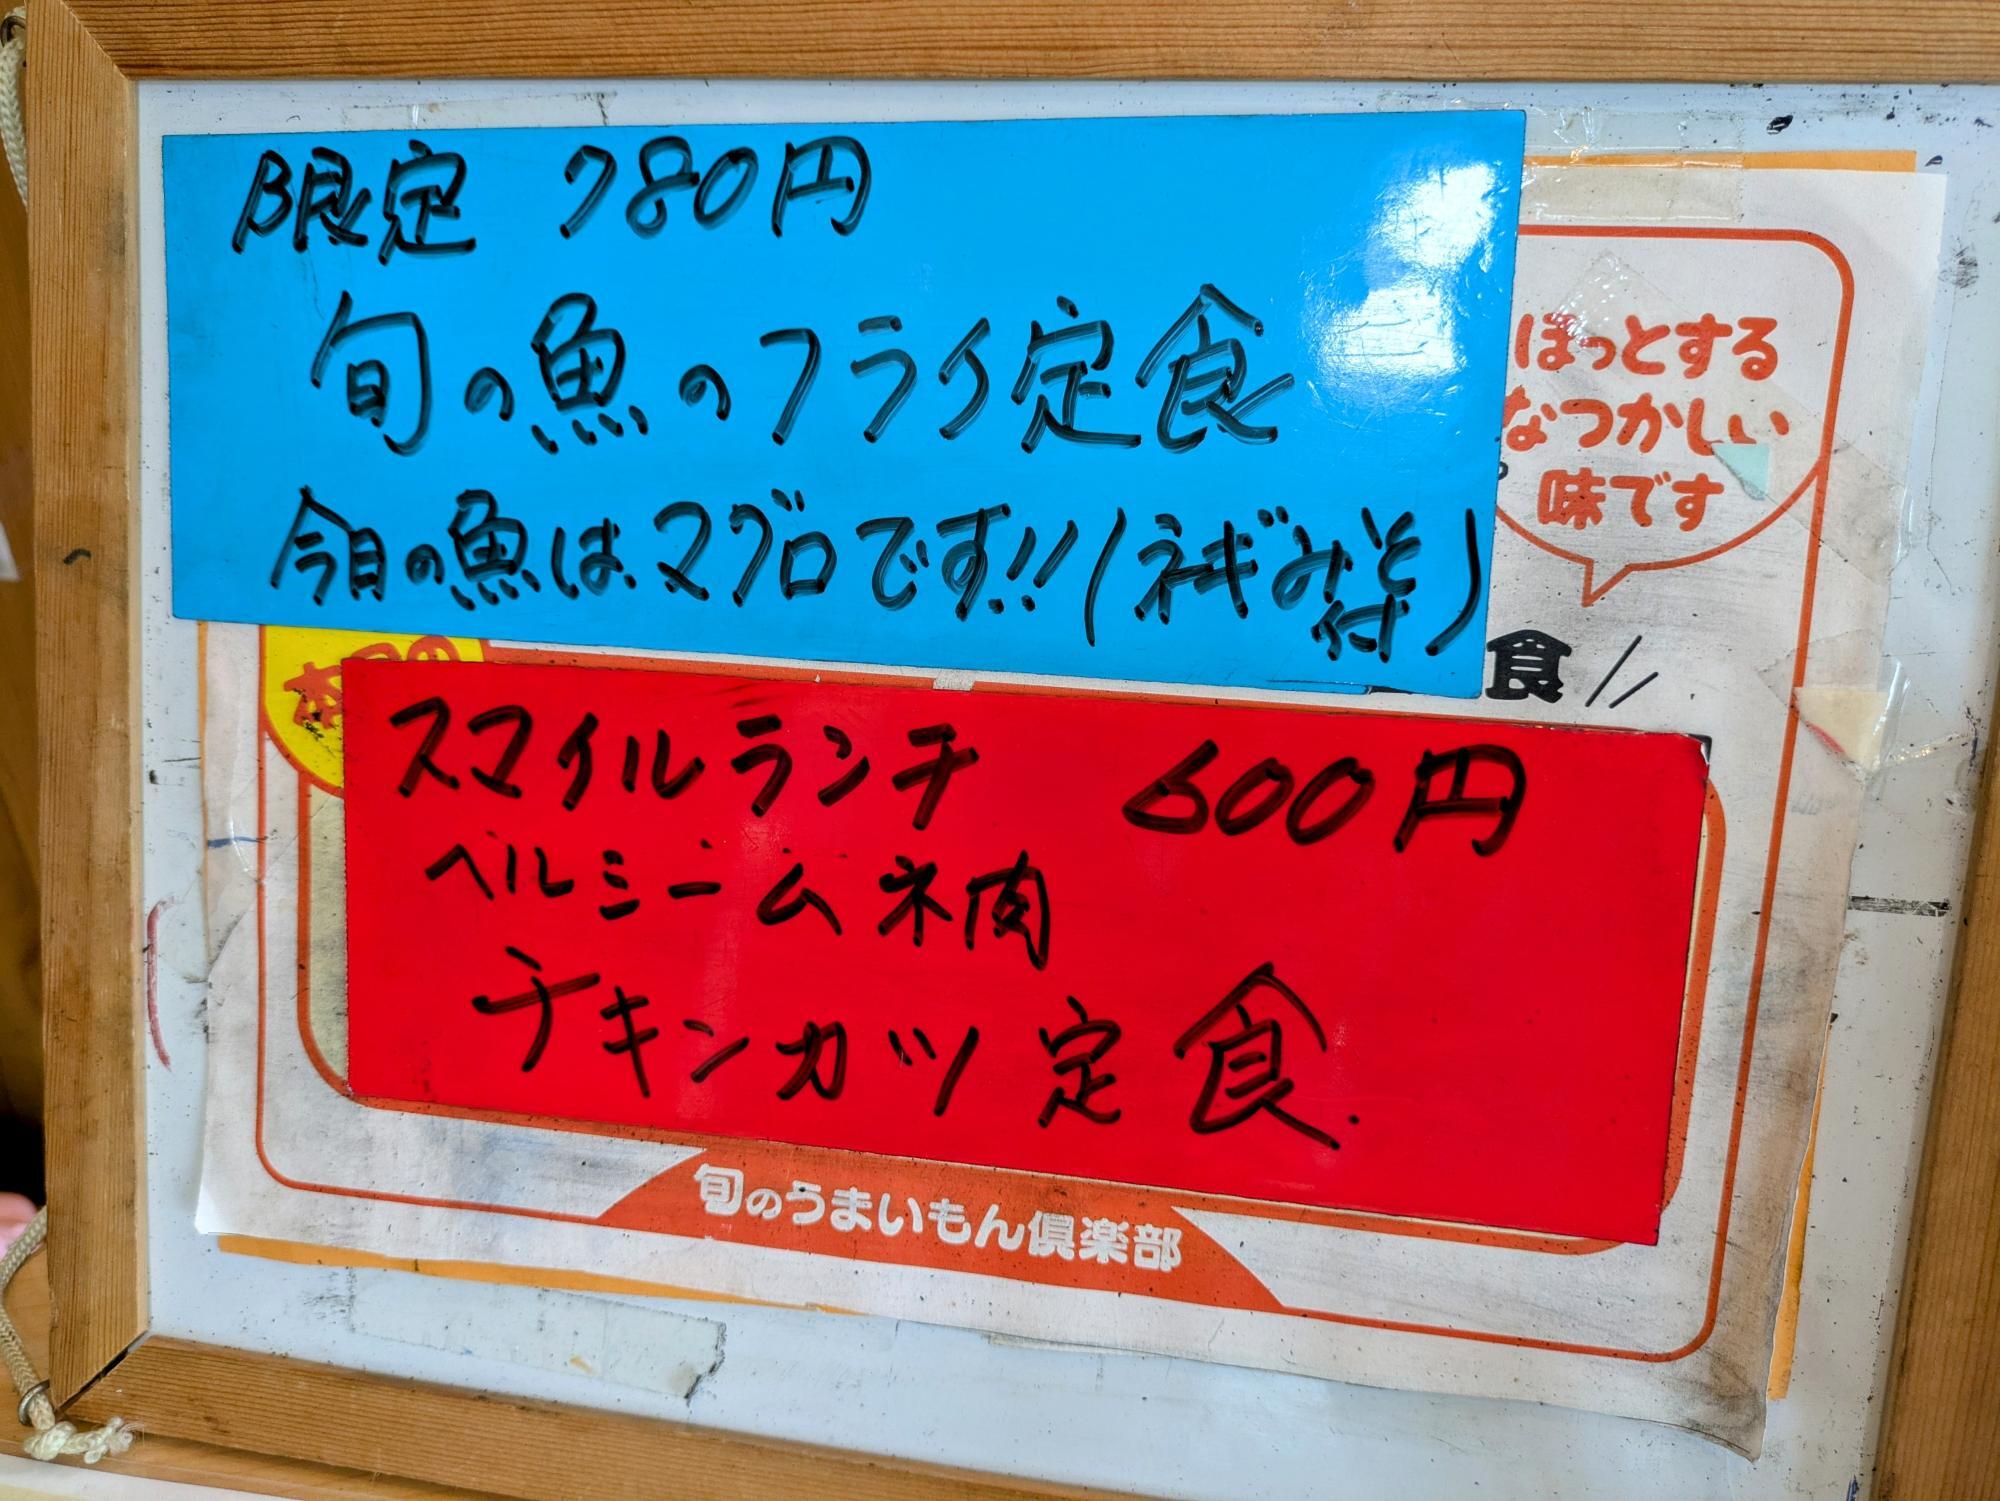 限定 780円
旬の魚のフライ定食
今日の魚はマグロです!!(ネギみそ付)
ほっとする
なつかしい
味です
食 //
本日の
スマイルランチ 600円
ヘルシームネ肉
チキンカツ定食.
旬のうまいもん倶楽部